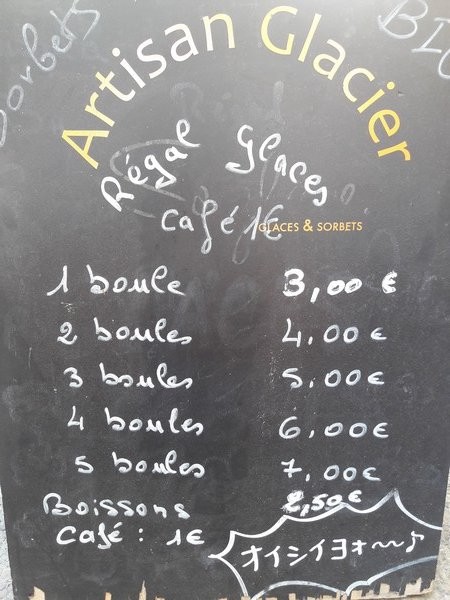 Sorbets
BIO
Artisan Glacier
Régal Glaces
Café 1€
GLACES & SORBETS
1 boule 3,00 €
2 boules 4,00 €
3 boules 5,00 €
4 boules 6,00 €
5 boules 7,00 €
Boissons 2,50€
Café : 1€
オイシイヨォ〜〜♪